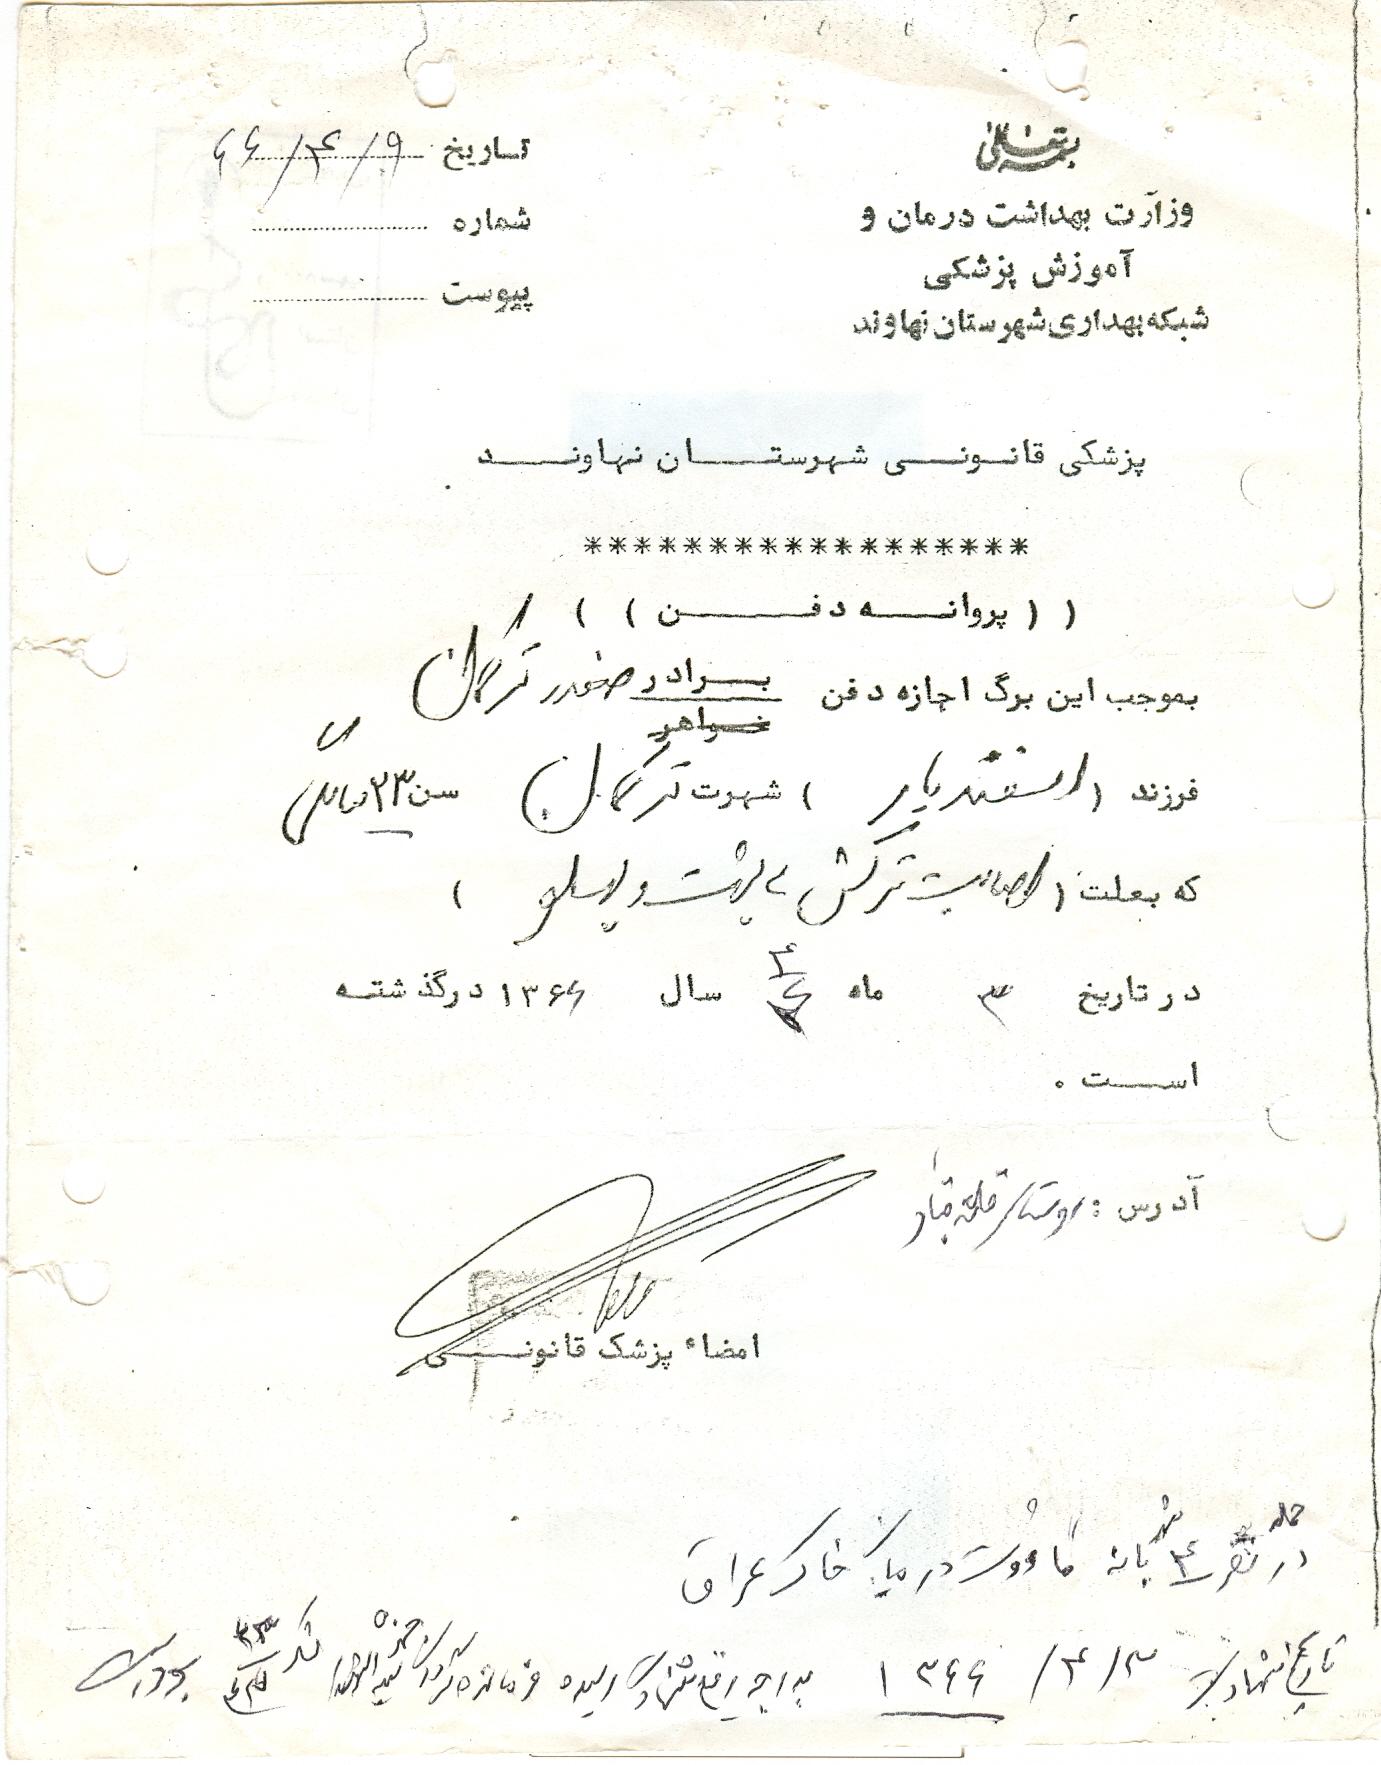 بسمه تعالی
وزارت بهداشت درمان و
آموزش پزشکی
شبکه بهداری شهرستان نهاوند
تاریخ ۶۶/۴/۹
شماره
پیوست
پزشکی قانونی شهرستان نهاوند
******************
( ( پروانه دفن ) )
بموجب این برگ اجازه دفن برادر صفدر ترکمان
خواهر
فرزند ( اسفندیار ) شهرت ترکمان سن ۲۳ سالگی
که بعلت ( اصابت ترکش به پشت و پهلو )
در تاریخ ۳ ماه ۴ سال ۱۳۶۶ درگذشته
است .
آدرس : روستای قلعه قباد
امضاء پزشک قانونی
در حمله نصر ۴ شد ماووت در خاک عراق
تاریخ شهادت ۱۳۶۶/۴/۳ به درجه رفیع شهادت رسیده فرمانده گردان حمزه سیدالشهدا